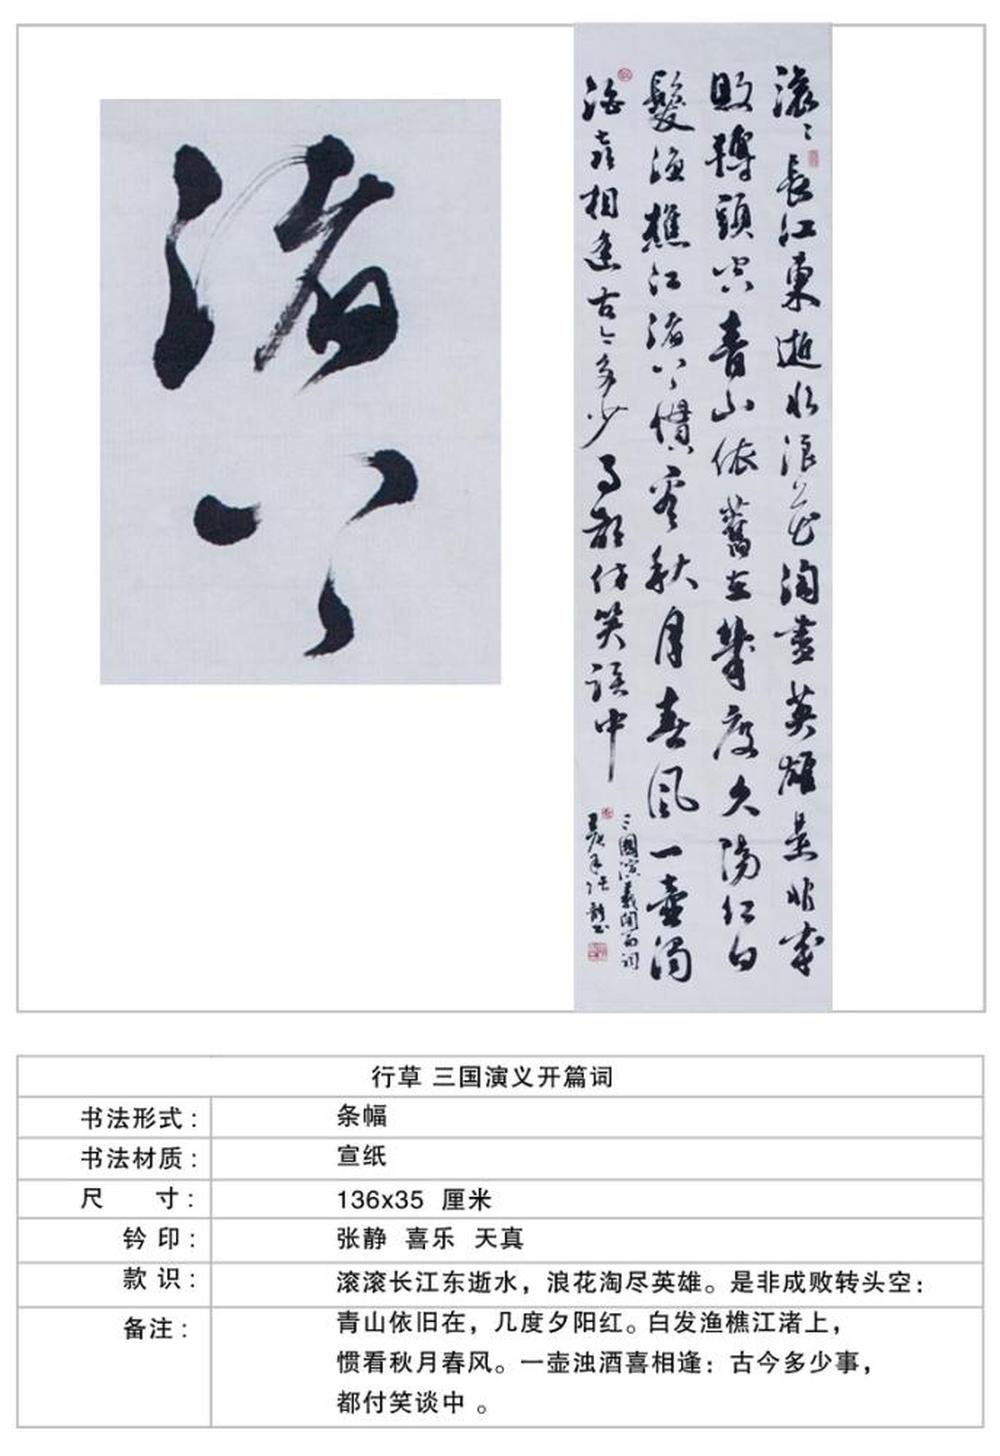 渚上
滚滚長江東逝水浪花淘盡英雄是非成
敗轉頭空青山依舊在幾度夕陽紅白
髮漁樵江渚上慣看秋月春風一壺濁
酒喜相逢古今多少事都付笑談中
三國演義開篇词
行草 三国演义开篇词
书法形式: 条幅
书法材质: 宣纸
尺 寸: 136x35 厘米
钤 印: 张静 喜乐 天真
款 识: 滚滚长江东逝水，浪花淘尽英雄。是非成败转头空：
备注: 青山依旧在，几度夕阳红。白发渔樵江渚上，
惯看秋月春风。一壶浊酒喜相逢：古今多少事，
都付笑谈中 。